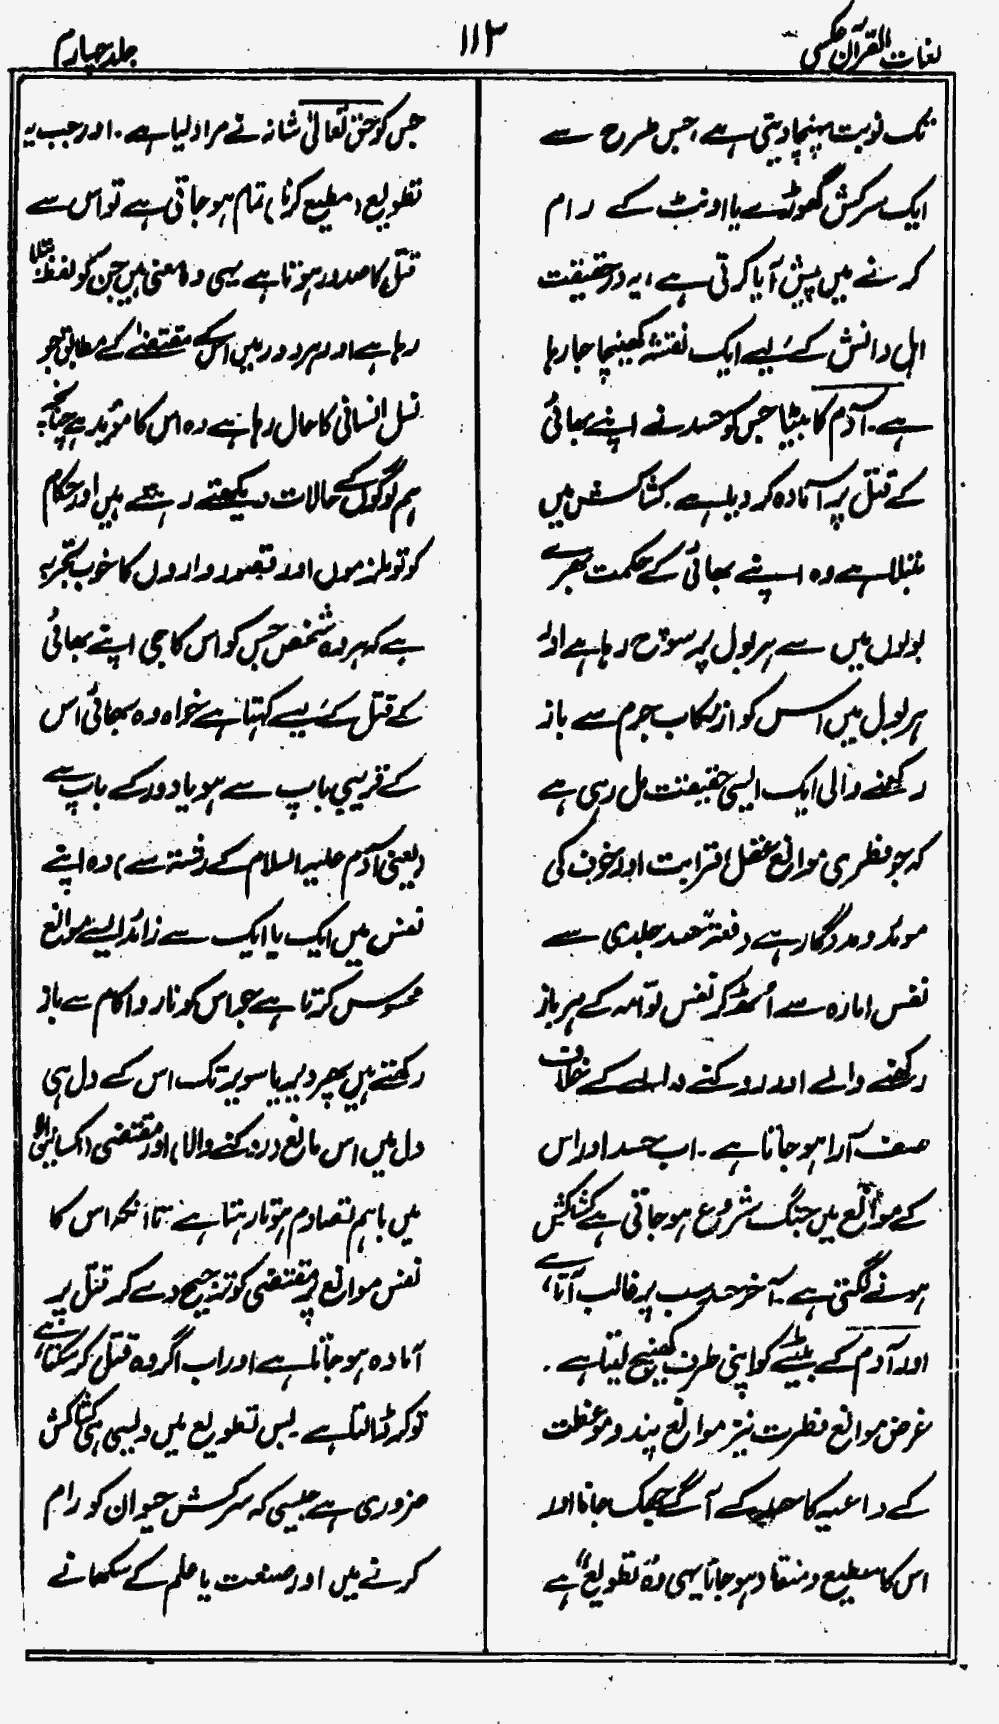 لغات القرآن عکسی
۱۱۳
جلد چہارم
تک نوبت پہنچا دیتی ہے، جس طرح سے
ایک سرکش گھوڑے یا اونٹ کے رام
کرنے میں پیش آیا کرتی ہے، یہ درحقیقت
اہل دانش کے لیے ایک نقشہ کھینچا جا رہا
ہے۔ آدم کا بیٹا جس کو حسد نے اپنے بھائی
کے قتل پر آمادہ کر دیا ہے۔ کشاکش میں
مبتلا ہے وہ اپنے بھائی کے حکمت بھرے
بولوں میں سے ہر بول پر سوچ رہا ہے اور
ہر بول میں اس کو ارتکاب جرم سے باز
رکھنے والی ایک ایسی حقیقت مل رہی ہے
کہ جو فطری موانع عقل، قرابت اور خوف کی
موید و مددگار ہے دفعۃً حسد جلدی سے
نفس امارہ سے اُمڈ کر نفس لوّامہ کے ہر باز
رکھنے والے اور روکنے والے کے خلاف
صف آرا ہو جاتا ہے۔ اب حسد اور اس
کے موانع میں جنگ شروع ہو جاتی ہے کشاکش
ہونے لگتی ہے۔ آخر حسد سب پر غالب آتا ہے،
اور آدم کے بیٹے کو اپنی طرف کھینچ لیتا ہے۔
غرض موانع فطرت نیز موانع پند و موعظت
کے داعیہ کا حسد کے آگے جھک جانا اور
اس کا مطیع و منقاد ہو جانا یہی وہ "تطویع" ہے
جس کو حق تعالیٰ شانہ نے مراد لیا ہے۔ اور جب یہ
تطویع (مطیع کرنا) تمام ہو جاتی ہے تو اس سے
قتل کا صدور ہوتا ہے یہی وہ معنی ہیں جن کو لفظ بتلا
رہا ہے اور ہر دور میں اس کے مقتضےٰ کے مطابق جو
نسل انسانی کا حال رہا ہے وہ اس کا مؤید ہے چنانچہ
ہم لوگوں کے حالات دیکھتے رہتے ہیں اور حکام
کو تو ملزموں اور قصور واروں کا خوب تجربہ
ہے کہ ہر وہ شخص جس کو اس کا جی اپنے بھائی
کے قتل کے لیے کہتا ہے خواہ وہ بھائی اس
کے قریبی باپ سے ہو یا دور کے باپ سے
(یعنی آدم علیہ السلام کے رشتہ سے) وہ اپنے
نفس میں ایک یا ایک سے زائد ایسے موانع
محسوس کرتا ہے جو اس کو ناروا کام سے باز
رکھتے ہیں پھر دیر یا سویر تک اس کے دل ہی
دل میں اس مانع (روکنے والا) اور مقتضی (اکسانے والا)
میں باہم تصادم ہوتا رہتا ہے تا آنکہ اس کا
نفس موانع پر مقتضی کو ترجیح دے کر قتل پر
آمادہ ہو جاتا ہے اور اب اگر وہ قتل کر سکتا ہے،
تو کر ڈالتا ہے۔ پس تطویع میں ویسی ہی کشاکش
ضروری ہے جیسی کہ سرکش حیوان کو رام
کرنے میں اور صنعت یا علم کے سکھانے